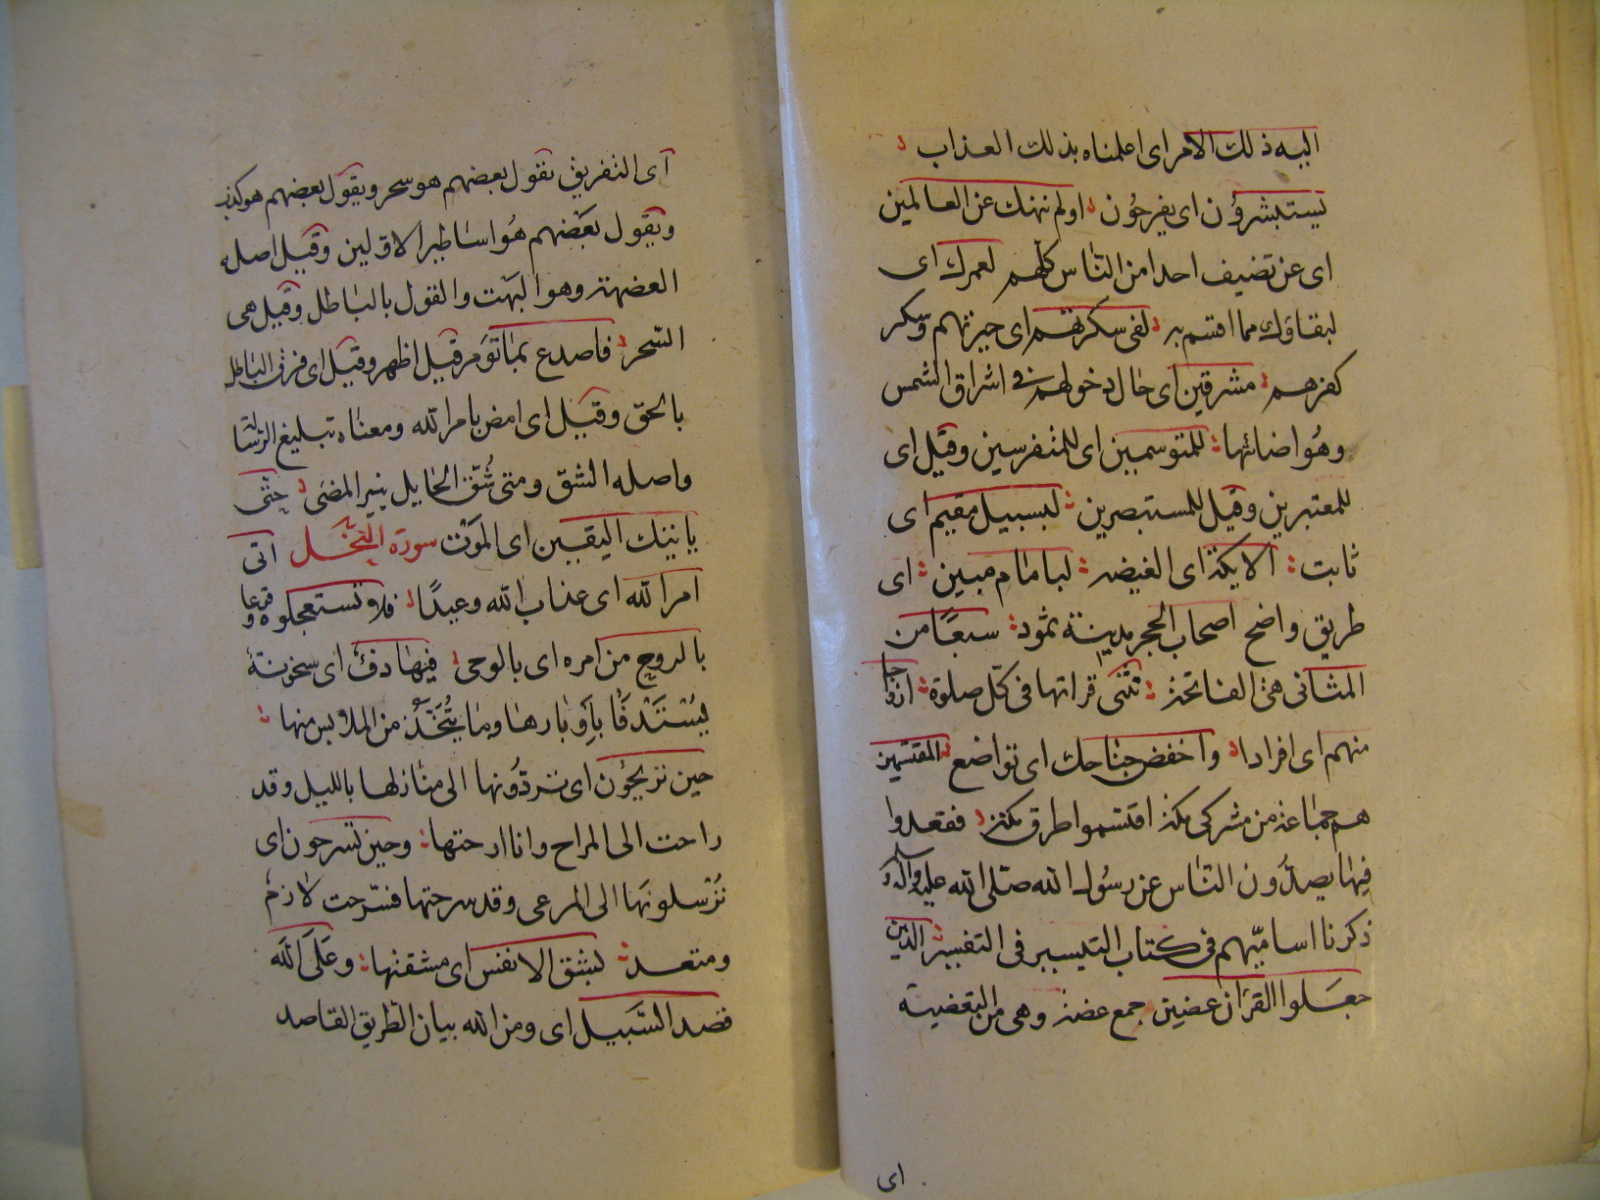 اليه ذلك الامر اى اعلمناه بذلك العذاب
يستبشرون اى يفرحون اولم ننهك عن العالمين
اى عن تضيف احدا من الناس كلهم لعمرك اى
لبقاؤك مما اقسم به لفى سكرتهم اى حيرتهم وسكر
كفرهم مشرقين اى حال دخولهم فى اشراق الشمس
وهو اضائتها للمتوسمين اى للمتفرسين وقيل اى
للمعتبرين وقيل للمستبصرين لبسبيل مقيم اى
ثابت الايكة اى الغيضه لبامام مبين اى
طريق واضح اصحاب الحجر مدينة ثمود سبعًا من
المثانى هى الفاتحة تثنى قراتها فى كل صلوة ازواجا
منهم اى افرادا واخفض جناحك اى تواضع المقتسمين
هم جماعة من مشركى مكة اقتسموا طرق مكة فقعدوا
فيها يصدّون الناس عن رسول الله صلى الله عليه وآله وسلم
ذكرنا اساميهم فى كتاب التيسير فى التفسير الذين
جعلوا القران عضين جمع عضة وهى من التعضية
اى
اى التفريق يقول بعضهم هو سحر ويقول بعضهم هو كذب
ويقول بعضهم هو اساطير الاولين وقيل اصله
العضهة وهو البهت والقول بالباطل وقيل هى
السّحر فاصدع بما تؤمر قيل اظهر وقيل اى فرق الباطل
بالحق وقيل اى امض بامر الله ومعناه تبليغ الرسالة
واصله الشق ومتى شُقّ الحايل المضى حتى
ياتيك اليقين اى الموت سورة النحل اتى
امر الله اى عذاب الله وعيدًا فلا تستعجلوه وقوعا
بالروح من امره اى بالوحى فيها دفء اى سخونة
يُستَدفَأ باَوبارها وما يُتَّخَذُ من الملابس منها
حين تريحون اى تردّونها الى منازلها بالليل وقد
راحت الى المراح وانا ارحتها وحين تسرحون اى
تُرسلونها الى المرعى وقد سرحتها فسرحت لازم
ومتعد بشق الانفس اى مشقتها وعَلَى الله
قصد السّبيل اى ومن الله بيان الطريق القاصد